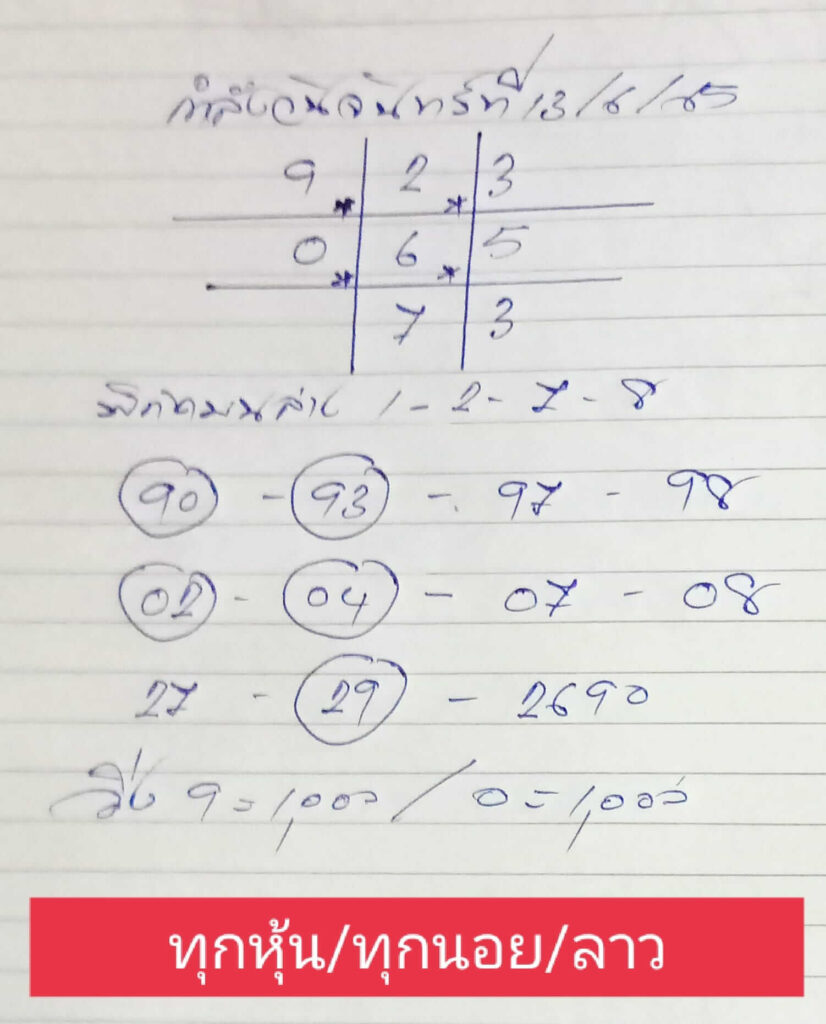 กำลังวันจันทร์ที่ 13/6/65
9 2 3
0 6 5
7 3
พิกัดบนล่าง 1 - 2 - 7 - 8
90 - 93 - 97 - 98
02 - 04 - 07 - 08
27 - 29 - 2690
วิ่ง 9 = 1,000 / 0 = 1,000
ทุกหุ้น/ทุกนอย/ลาว